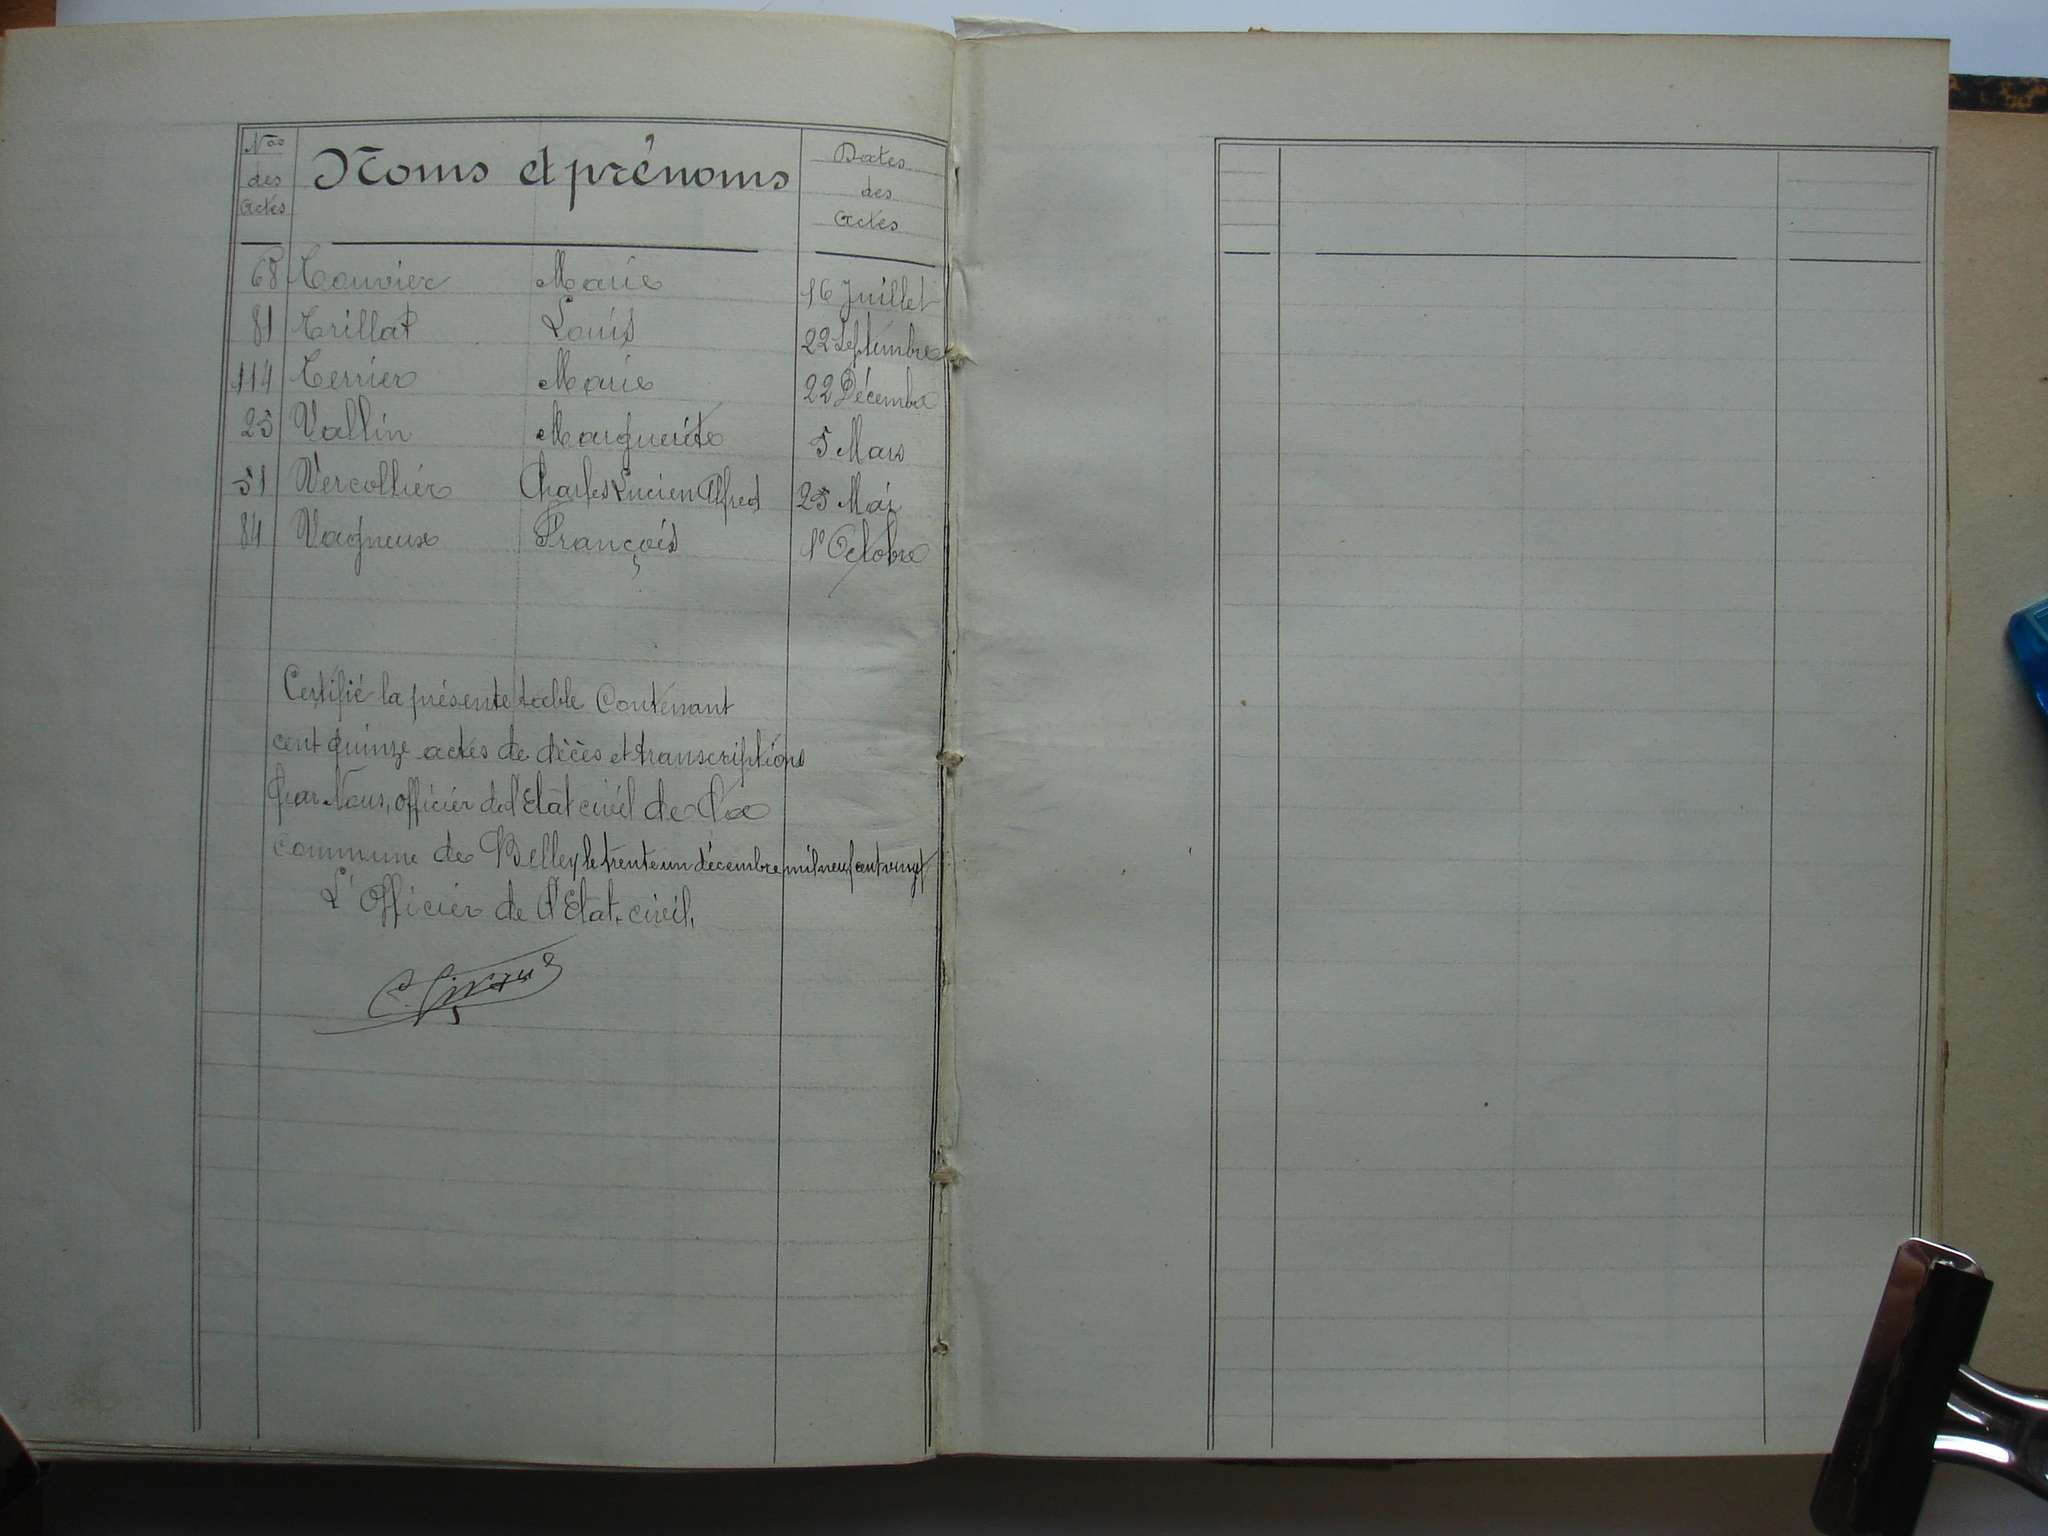 Nos des Actes Noms et prénoms Dates des Actes
68 Touvier Marie 16 Juillet
81 Trillat Louis 22 Septembre
114 Terrier Marie 22 Décembre
23 Vallin Marguerite 5 Mars
51 Vercollier Charles Lucien Alfred 25 Mai
84 Vagneux François 1er Octobre
Certifié la présente table Contenant
cent quinze actes de décès et transcriptions
par Nous, officier de l'Etat civil de la
commune de Belley le trente un décembre mil neuf cent vingt
L'Officier de l'Etat civil,